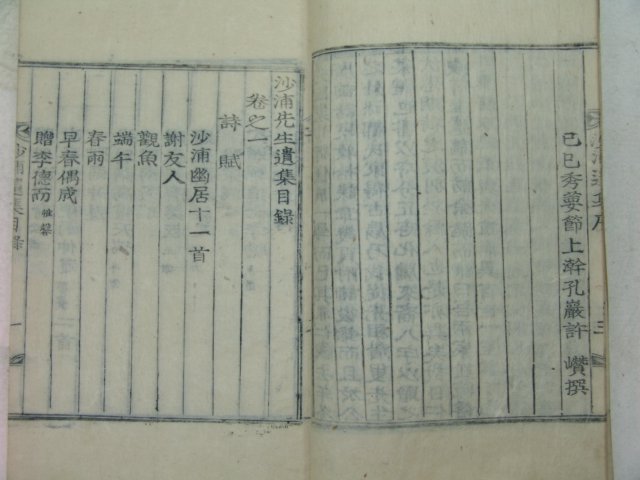 己巳秀葽節上澣孔巖許 巑撰
沙浦先生遺集目錄
卷之一
詩賦
沙浦幽居十一首
謝友人
觀魚
端午
春雨
早春偶成
贈李德而雅馨
沙浦遺集目錄
一